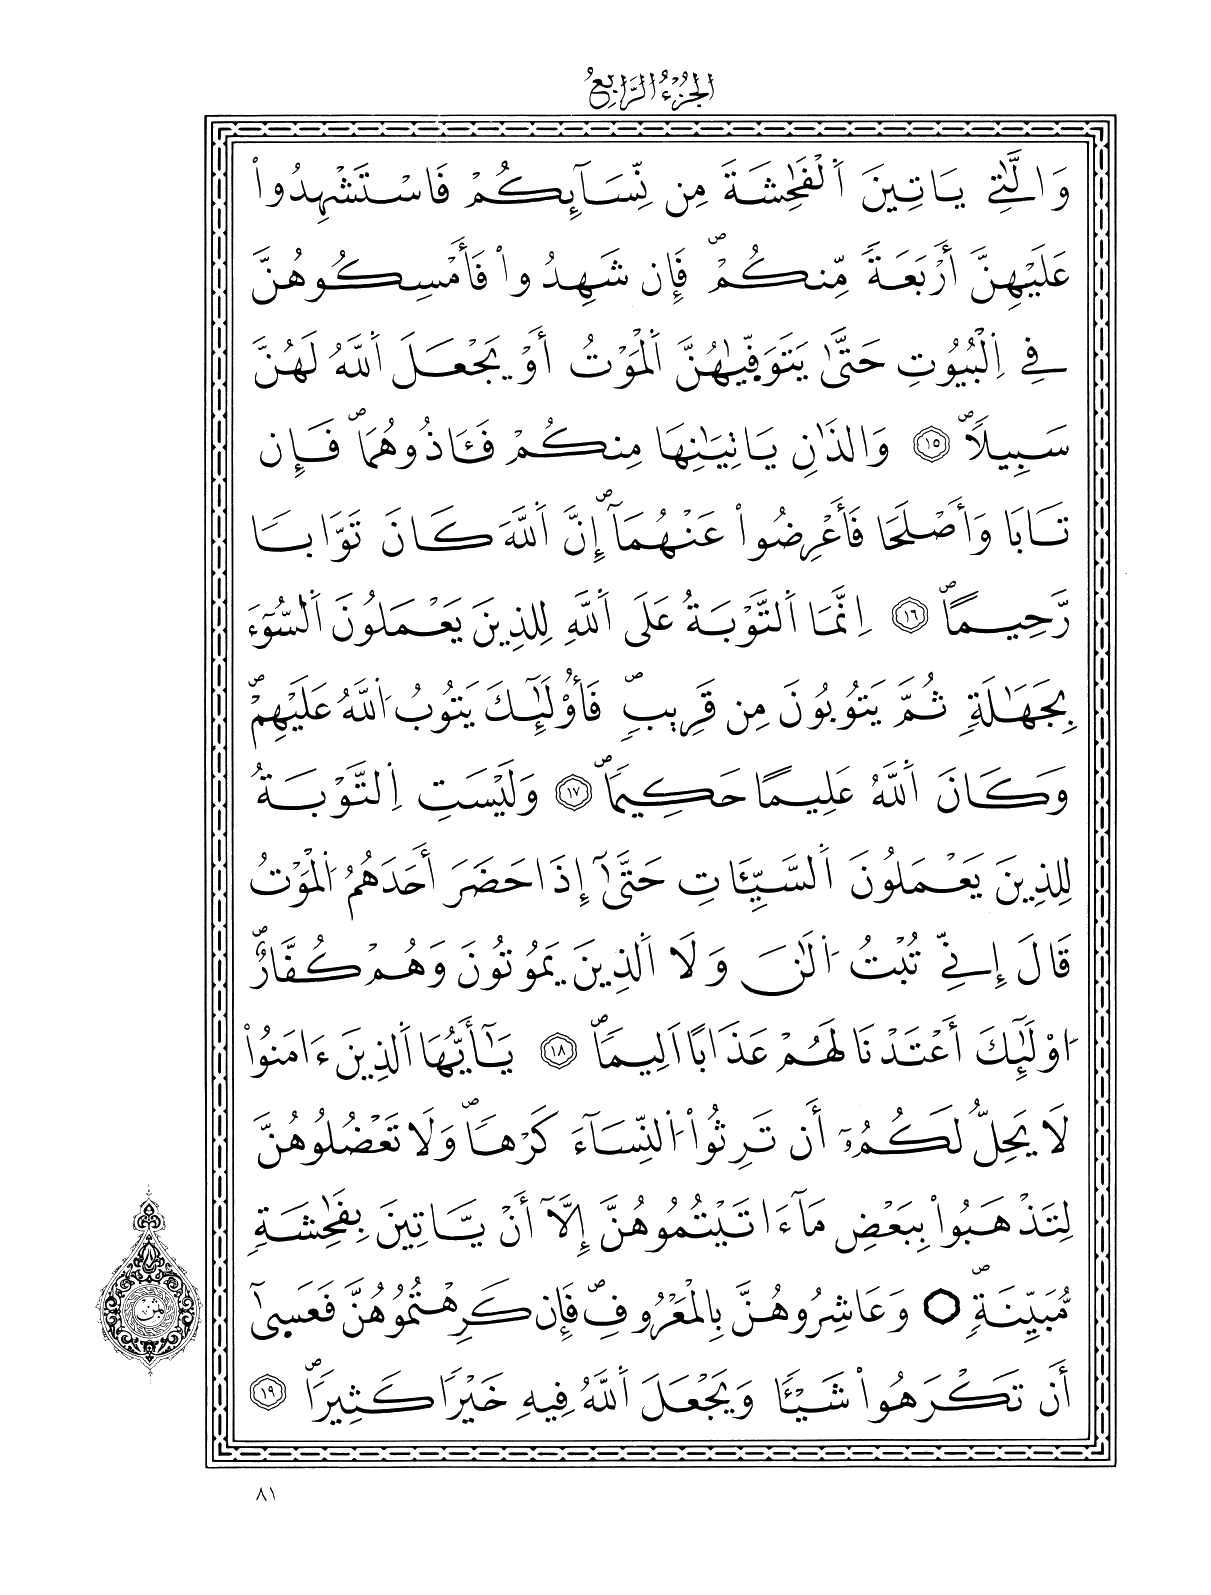 الجزء الرابع
وَالَّٰتِے يَاتِينَ اَ۬لْفَٰحِشَةَ مِن نِّسَآئِكُمْ فَاسْتَشْهِدُواْ
عَلَيْهِنَّ أَرْبَعَةٗ مِّنكُمْۖ فَإِن شَهِدُواْ فَأَمْسِكُوهُنَّ
فِے اِ۬لْبُيُوتِ حَتَّىٰ يَتَوَفّ۪يٰهُنَّ اَ۬لْمَوْتُ أَوْ يَجْعَلَ اَ۬للَّهُ لَهُنَّ
سَبِيلاٗۖ ١٥ وَالذَٰنِ يَاتِيَٰنِهَا مِنكُمْ فَـَٔاذُوهُمَاۖ فَإِن
تَابَا وَأَصْلَحَا فَأَعْرِضُواْ عَنْهُمَآۖ إِنَّ اَ۬للَّهَ كَانَ تَوَّاباٗ
رَّحِيماًۖ ١٦ اِنَّمَا اَ۬لتَّوْبَةُ عَلَى اَ۬للَّهِ لِلذِينَ يَعْمَلُونَ اَ۬لسُّوٓءَ
بِجَهَٰلَةٖ ثُمَّ يَتُوبُونَ مِن قَرِيبٖۖ فَأُوْلَٰٓئِكَ يَتُوبُ اُ۬للَّهُ عَلَيْهِمْۖ
وَكَانَ اَ۬للَّهُ عَلِيماً حَكِيماٗۖ ١٧ وَلَيْسَتِ اِ۬لتَّوْبَةُ
لِلذِينَ يَعْمَلُونَ اَ۬لسَّيِّـَٔاتِ حَتَّىٰٓ إِذَا حَضَرَ أَحَدَهُمُ اُ۬لْمَوْتُ
قَالَ إِنِّے تُبْتُ اُ۬لَٰنَ وَلَا اَ۬لذِينَ يَمُوتُونَ وَهُمْ كُفَّارٌۖ
اُوْلَٰٓئِكَ أَعْتَدْنَا لَهُمْ عَذَاباً اَلِيماٗۖ ١٨ يَٰٓأَيُّهَا اَ۬لذِينَ ءَامَنُواْ
لَا يَحِلُّ لَكُمُۥٓ أَن تَرِثُواْ اُ۬لنِّسَآءَ كَرْهاٗۖ وَلَا تَعْضُلُوهُنَّ
لِتَذْهَبُواْ بِبَعْضِ مَآ ءَاتَيْتُمُوهُنَّ إِلَّآ أَنْ يَّاتِينَ بِفَٰحِشَةٖ
مُّبَيِّنَةٖۖ وَعَاشِرُوهُنَّ بِالْمَعْرُوفِۖ فَإِن كَرِهْتُمُوهُنَّ فَعَس۪ىٰٓ
أَن تَكْرَهُواْ شَيْـٔاٗ وَيَجْعَلَ اَ۬للَّهُ فِيهِ خَيْراٗ كَثِيراٗۖ ١٩
ثمن
٨١